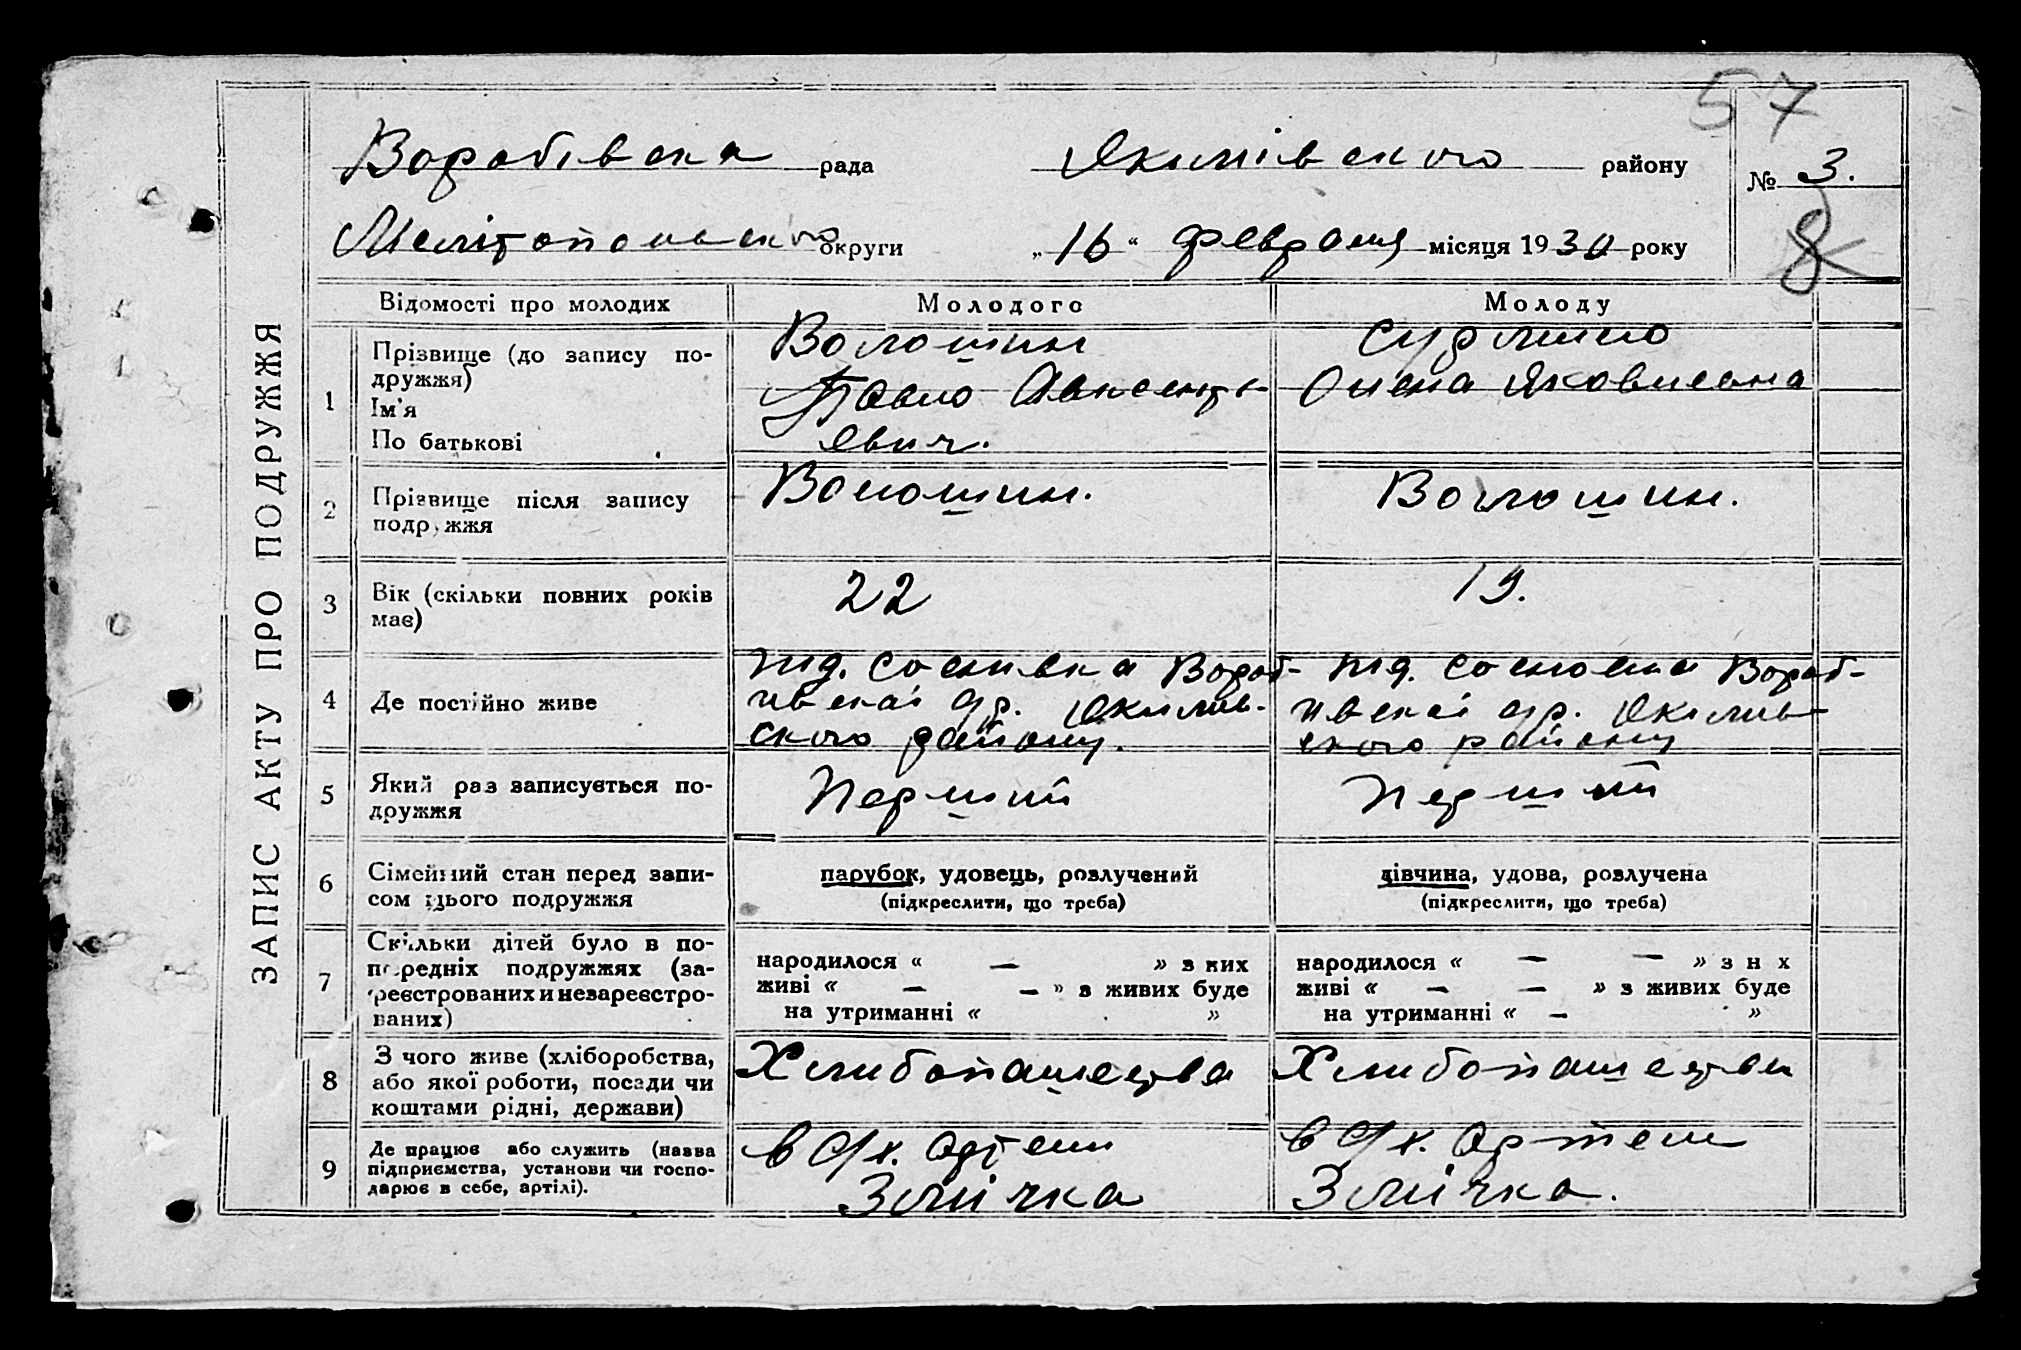 57
Воробівска рада Якимівського району № 3.
Мелітопольского округи „16“ февраля місяця 1930 року 8
ЗАПИС АКТУ ПРО ПОДРУЖЖЯ
Відомості про молодих Молодого Молоду
1 Прізвище (до запису по-
дружжя)
Ім'я
По батькові
Волошин
Павло Авксенть-
евич.
Олена Яковлевна
2 Прізвище після запису
подружжя
Волошин.
Волошин.
3 Вік (скільки повних років
має)
22
19.
4 Де постійно живе
Вороб-
ивскоі с/р. Якимив-
ского району.
Вороб-
ивскоі с/р. Якимив-
ского району
5 Який раз записується по-
дружжя
Перший
Перший
6 Сімейний стан перед запи-
сом цього подружжя
парубок, удовець, розлучений
(підкреслити, що треба)
дівчина, удова, розлучена
(підкреслити, що треба)
7 Скільки дітей було в по-
передніх подружжях (за-
реєстрованих и незареєстро-
ваних)
народилося « — » з них
живі « — — » з живих буде
на утриманні « »
народилося « — — » з н х
живі « — — » з живих буде
на утриманні « — »
8 З чого живе (хліборобства,
або якої роботи, посади чи
коштами рідні, держави)
Хлибопашества
Хлибопашества
9 Де працює або служить (назва
підприємства, установи чи госпо-
дарює в себе, артілі).
в с/х. Артели
Змичка
в с/х. Артели
Змичка.